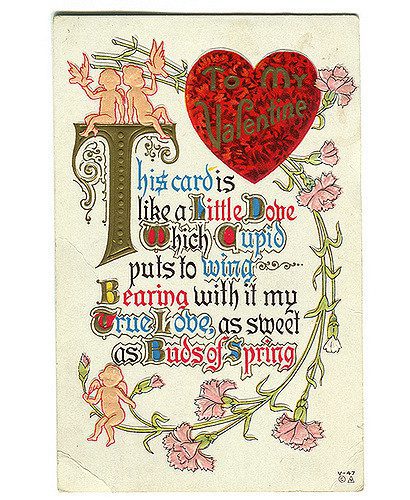 To My
Valentine
This card is
like a Little Dove
Which Cupid
puts to wing
Bearing with it my
True Love, as sweet
as Buds of Spring
V-47